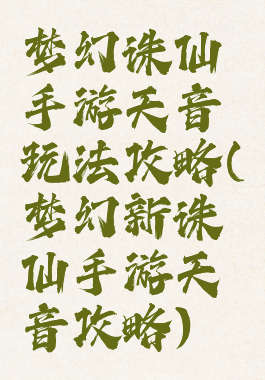 梦幻诛仙
手游天音
玩法攻略(
梦幻新诛
仙手游天
音攻略)